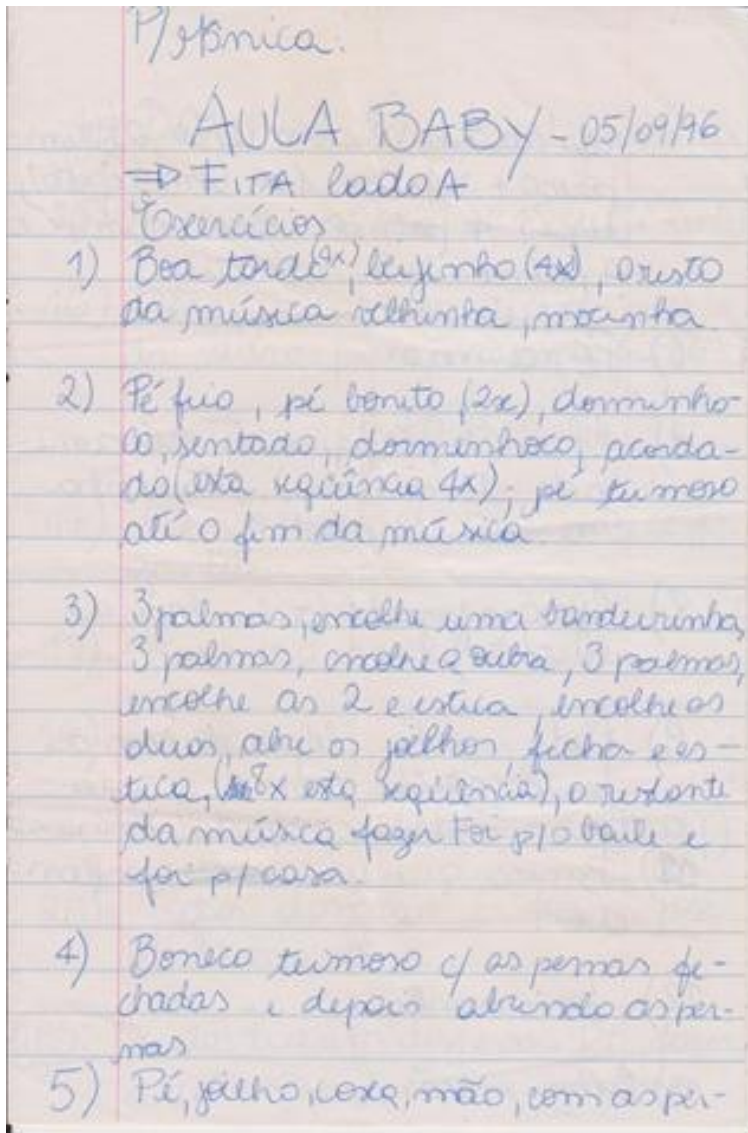 P/ Mônica.
AULA BABY - 05/09/96
⇒ FITA lado A
Exercícios
1) Boa tarde (4x), beijinho (4x), o resto
da música velhinha, mocinha.
2) Pé feio, pé bonito (2x), dorminho-
co, sentado, dorminhoco, acorda-
do (esta seqüência 4x); pé teimoso
até o fim da música.
3) 3 palmas, encolhe uma bandeirinha,
3 palmas, encolhe a outra, 3 palmas,
encolhe as 2 e estica, encolhe as
duas, abre os joelhos, fecha e es-
tica, (8x esta seqüência), o restante
da música fazer Foi p/ o baile e
foi p/ casa.
4) Boneco teimoso c/ as pernas fe-
chadas e depois abrindo as per-
nas
5) Pé, joelho, coxa, mão, com as per-